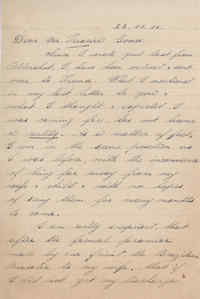 22.11.16.
Dear Mr. Friend Gomes
Since I wrote you last from
Aldershot, I have been without & sent
over to France. What I mentioned
in my last letter to you &
what I thought & expected I
was coming for, has not become
a reality. As a matter of fact,
I am in the same position as
I was before with the inconvenience
of being far away from my
wife & child & with no hopes
of seeing them for many months
to come.
I am really surprised, that
after the formal promise
made by our friend the Brazilian
Minister to my wife, that if
I did not get my discharge